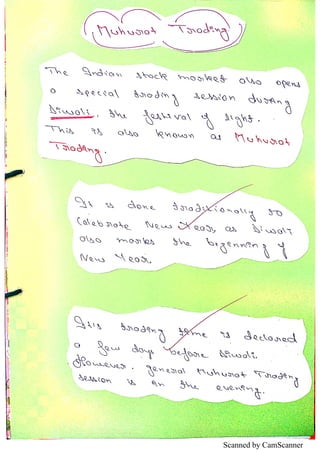 Muhurat Trading
The Indian stock market also opens
a special trading session during
Diwali, the festival of light.
This is also known as Muhurat
Trading.
It is done traditionally to
Celebrate New Year, as Diwali
also marks the beginning of
New Year.
This trading time is declared
a few days before Diwali
However, general Muhurat Trading
session is in the evening.
Scanned by CamScanner